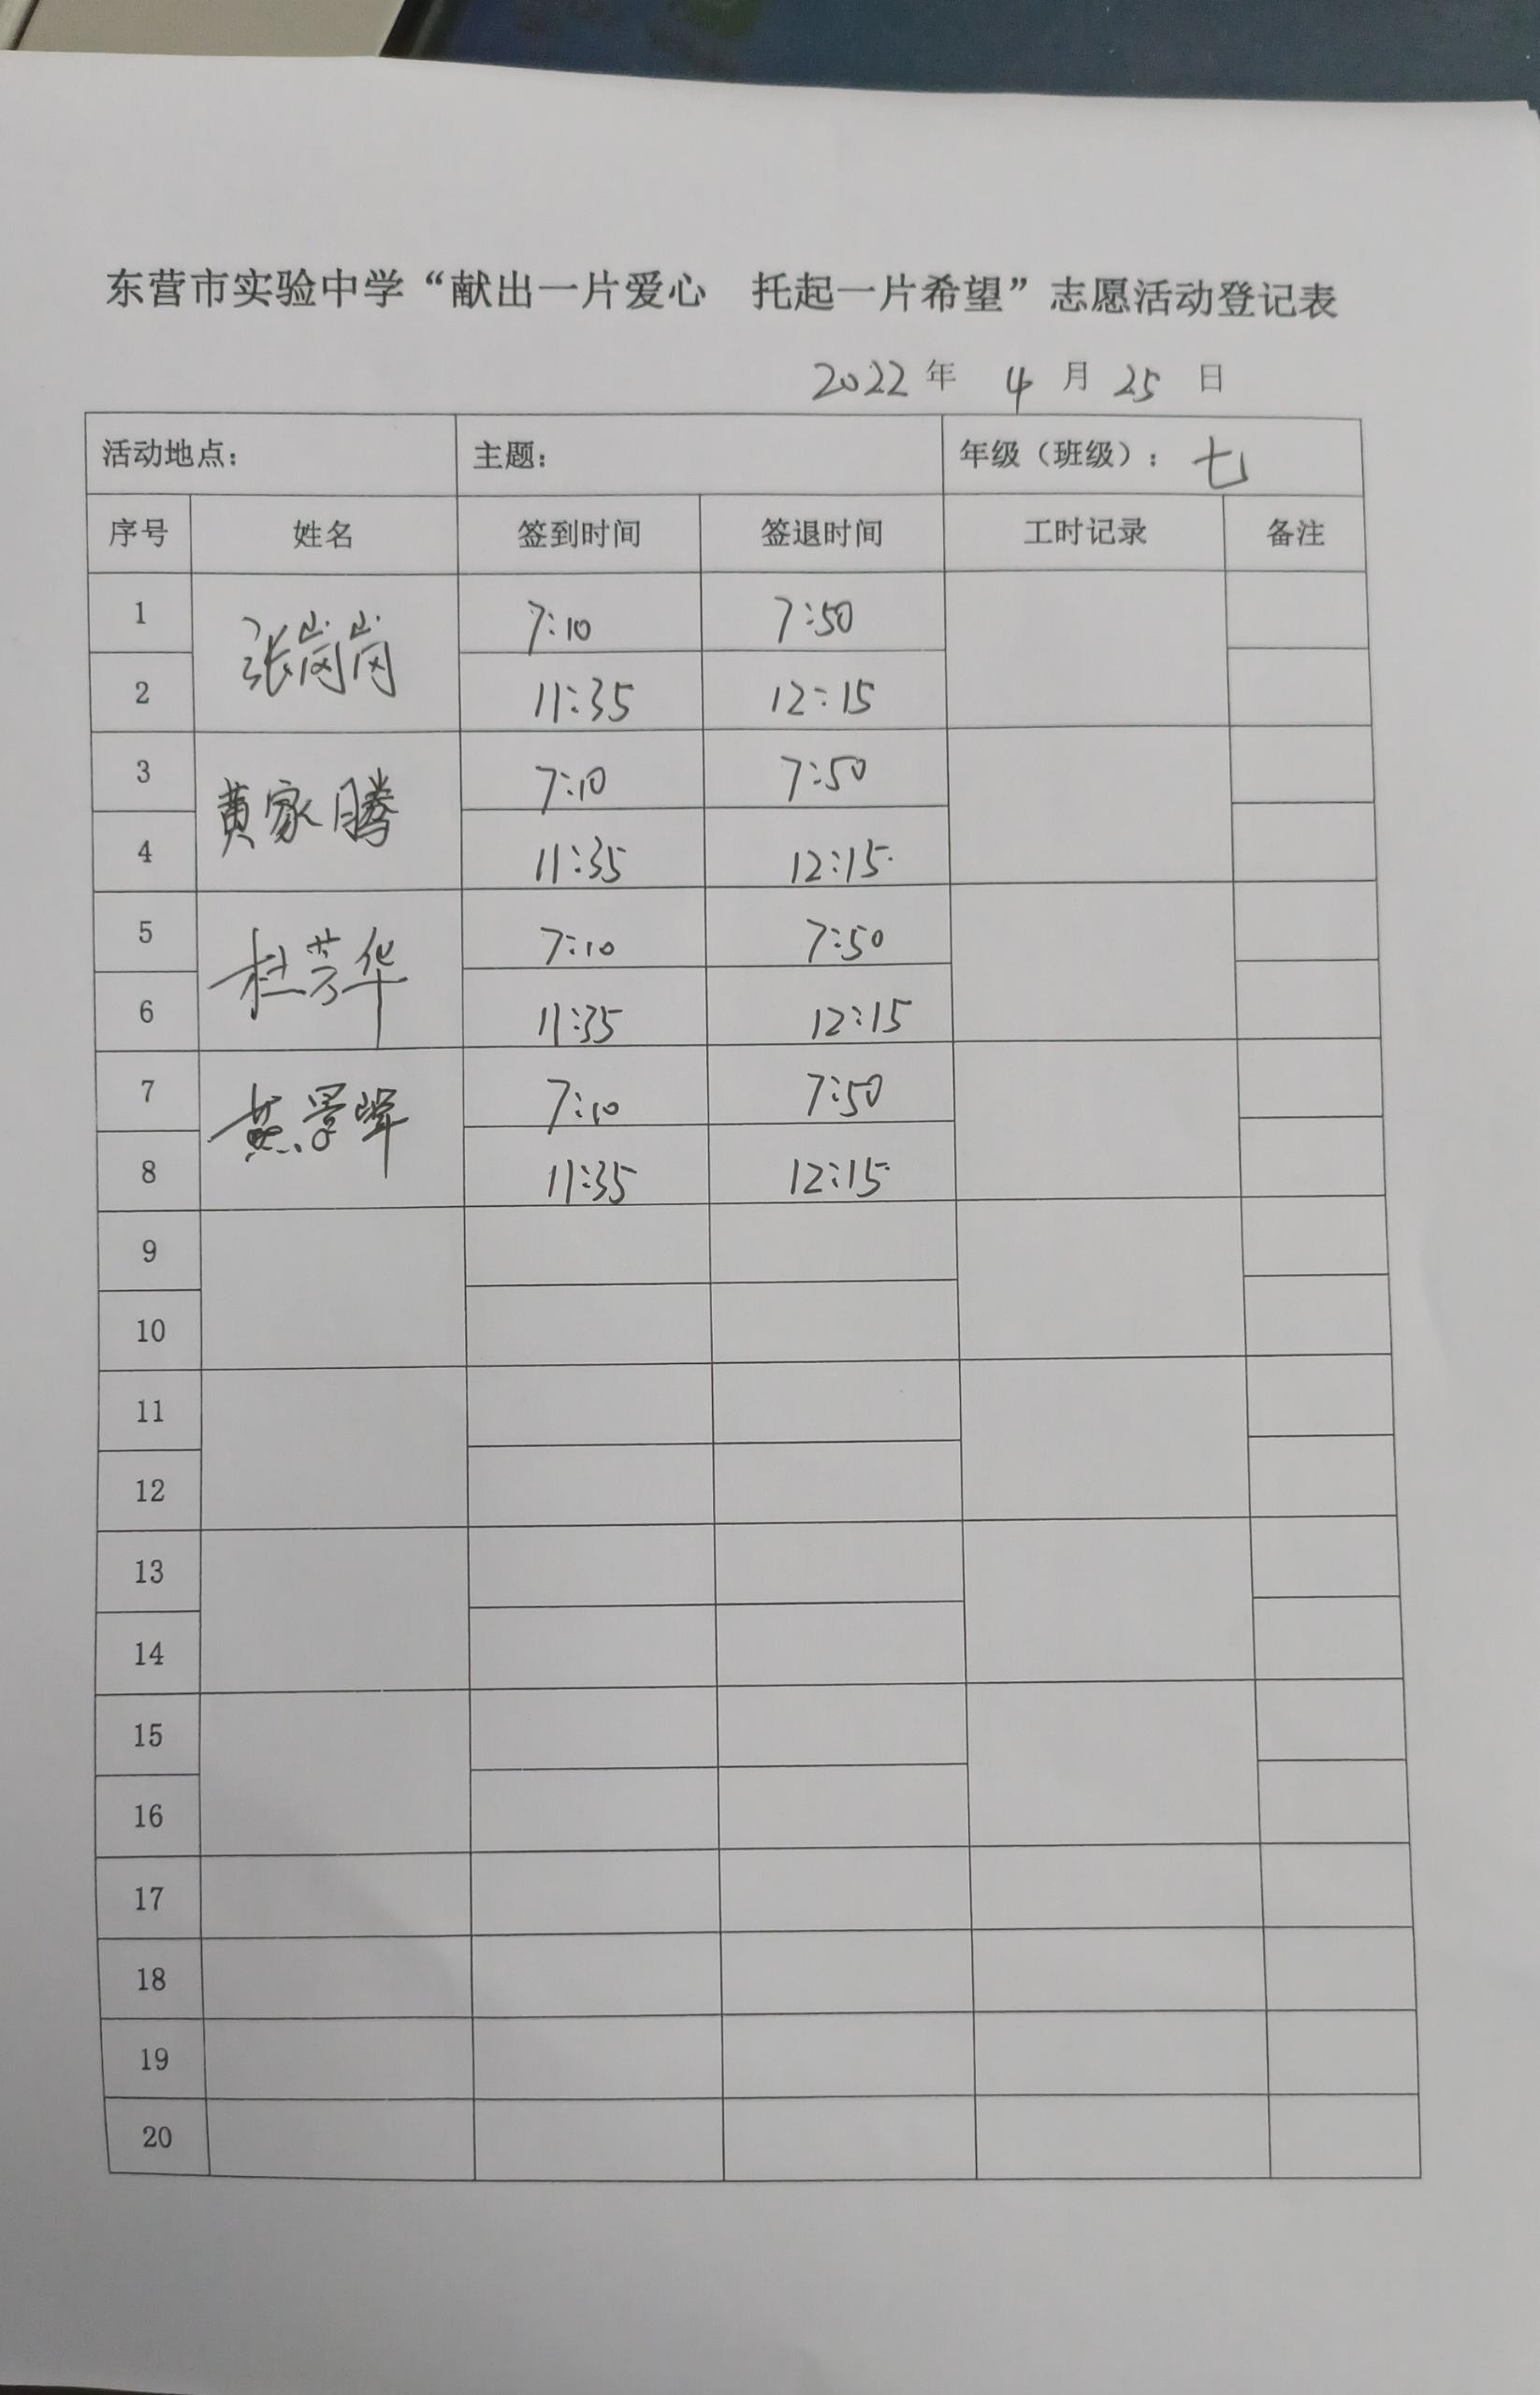 东营市实验中学“献出一片爱心 托起一片希望”志愿活动登记表
2022年 4月25日
活动地点： 主题： 年级（班级）：七
序号 姓名 签到时间 签退时间 工时记录 备注
1 张岗岗 7:10 7:50
2 11:35 12:15
3 黄家腾 7:10 7:50
4 11:35 12:15
5 杜芳华 7:10 7:50
6 11:35 12:15
7 7:10 7:50
8 11:35 12:15
9
10
11
12
13
14
15
16
17
18
19
20